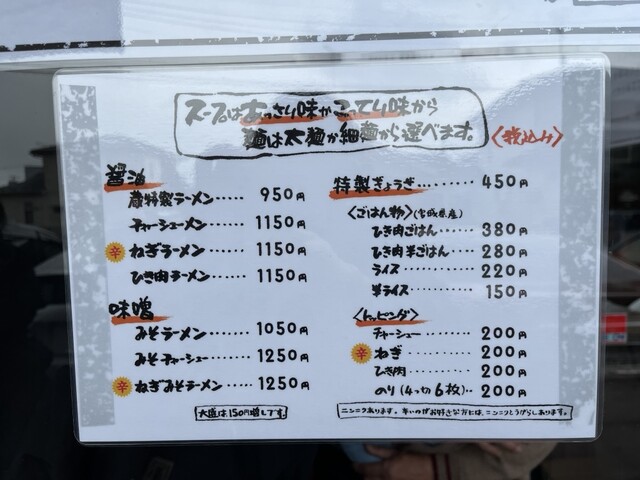 スープはあっさり味かこってり味から
麺は太麺か細麺から選べます。
〈税込み〉
醤油
蔵特製ラーメン…… 950円
チャーシューメン…… 1150円
辛 ねぎラーメン…… 1150円
ひき肉ラーメン…… 1150円
味噌
みそラーメン…… 1050円
みそチャーシュー…… 1250円
辛 ねぎみそラーメン…… 1250円
大盛は150円増しです。
特製ぎょうざ…… 450円
〈ごはん物〉(宮城県産)
ひき肉ごはん…… 380円
ひき肉半ごはん…… 280円
ライス…… 220円
半ライス…… 150円
〈トッピング〉
チャーシュー…… 200円
辛 ねぎ…… 200円
ひき肉…… 200円
のり(4つ切6枚)‥ 200円
ニンニクあります。辛いのがお好きな方には、ニンニクとうがらしあります。